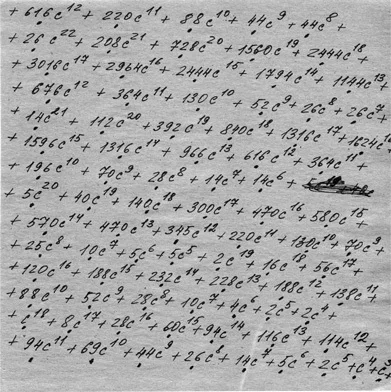 + 616c¹² + 220c¹¹ + 88c¹⁰ + 44c⁹ + 44c⁸ +
+ 26c²² + 208c²¹ + 728c²⁰ + 1560c¹⁹ + 2444c¹⁸
+ 3016c¹⁷ + 2964c¹⁶ + 2444c¹⁵ + 1794c¹⁴ + 1144c¹³ +
+ 676c¹² + 364c¹¹ + 130c¹⁰ + 52c⁹ + 26c⁸ + 26c⁷ +
+ 14c²¹ + 112c²⁰ + 392c¹⁹ + 840c¹⁸ + 1316c¹⁷ + 1624c¹⁶
+ 1596c¹⁵ + 1316c¹⁴ + 966c¹³ + 616c¹² + 364c¹¹ +
+ 196c¹⁰ + 70c⁹ + 28c⁸ + 14c⁷ + 14c⁶ +
+ 5c²⁰ + 40c¹⁹ + 140c¹⁸ + 300c¹⁷ + 470c¹⁶ + 580c¹⁵
+ 570c¹⁴ + 470c¹³ + 345c¹² + 220c¹¹ + 130c¹⁰ + 70c⁹
+ 25c⁸ + 10c⁷ + 5c⁶ + 5c⁵ + 2c¹⁹ + 16c¹⁸ + 56c¹⁷ +
+ 120c¹⁶ + 188c¹⁵ + 232c¹⁴ + 228c¹³ + 188c¹² + 138c¹¹ +
+ 88c¹⁰ + 52c⁹ + 28c⁸ + 10c⁷ + 4c⁶ + 2c⁵ + 2c⁴ +
+ c¹⁸ + 8c¹⁷ + 28c¹⁶ + 60c¹⁵ + 94c¹⁴ + 116c¹³ + 114c¹² +
+ 94c¹¹ + 69c¹⁰ + 44c⁹ + 26c⁸ + 14c⁷ + 5c⁶ + 2c⁵ + c⁴ + c³